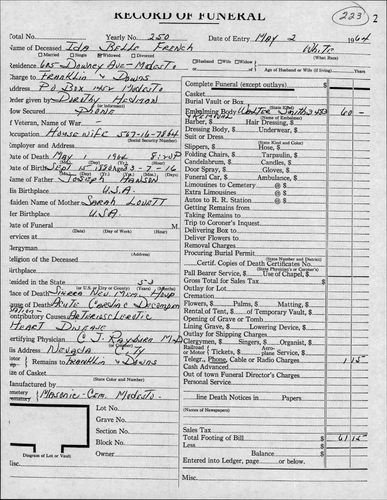 RECORD OF FUNERAL
223 2
Total No. Yearly No. 250 Date of Entry May 2 1964
Name of Deceased Ida Belle French White
Married Single Widowed Divorced Husband Wife Widow of (What Race)
Residence 605 Downey Ave - Modesto Age of Husband or Wife (if living) Years
Charge to Franklin & Downs
Address P.O. Box 1454 Modesto
Order given by Dorothy
How Secured Phone
If Veteran, Name of War
Occupation Housewife 567-16-7864
(Social Security Number)
Employer and Address
Date of Death May 1 1964
Date of Birth Sept 15 1880 Aged 83-7-16
Name of Father Joseph Hanson
His Birthplace U.S.A.
Maiden Name of Mother Sarah Lovett
Her Birthplace U.S.A.
Date of Funeral M
(Date) (Day of Week) (Hour)
Services at
Clergyman
Religion of the Deceased
Birthplace
Resided in the State
(U.S. or City or County) (Years) (Months)
Place of Death Sierra Nev. Mem. Hosp
Cause of Death Acute Cardiac Decompen
sation
Contributory Causes Arteriosclerotic
Heart Disease
Certifying Physician C J Rayburn M.D.
His Address Nevada City
Remains to Franklin & Downs
Size of Casket
(State Color and Number)
Manufactured by
Masonic - Cem. Modesto
Lot No.
Grave No.
Section No.
Block No.
Owner
Diagram of Lot or Vault
Misc.
Complete Funeral (except outlays) $
Casket
Burial Vault or Box
(State Kind)
Embalming Body 60 -
(Name of Embalmer)
Barber, $ Hair Dressing, $
Dressing Body, $ Underwear, $
Suit or Dress
(State Kind and Color)
Slippers, $ Hose, $
Folding Chairs, $ Tarpaulin, $
Candelabrum, $ Candles, $
Door Spray, $ Gloves, $
Funeral Car, $ Ambulance, $
Limousines to Cemetery @ $
Extra Limousines @ $
Autos to R. R. Station @ $
Getting Remains from
Taking Remains to
Trip to Coroner's Inquest
Delivering Box to
Deliver Flowers to
Removal Charges
Procuring Burial Permit
(State Number and District)
Certif. Copies of Death Certificates No.
(State Physician's or Coroner's)
Pall Bearer Service, $ Use of Chapel, $
Gross Total for Sales Tax $
Outlay for Lot
Cremation
Flowers, $ Palms, $ Matting, $
Rental of Tent, $ of Temporary Vault, $
Opening of Grave or Tomb
Lining Grave, $ Lowering Device, $
Outlay for Shipping Charges
Clergymen, $ Singers, $ Organist, $
Railroad or Motor Tickets, $ Aeroplane Service, $
Telegr., Phone, Cable or Radio Charges 1 15
Cash Advanced
Out of town Funeral Director's Charges
Personal Service
line Death Notices in Papers
(Names of Newspapers)
Sales Tax
Total Footing of Bill $ 61 15
Less $
Balance $
Entered into Ledger, page or below. $
Misc.